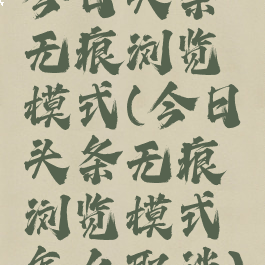 今日头条
无痕浏览
模式(今日
头条无痕
浏览模式
怎么取消)